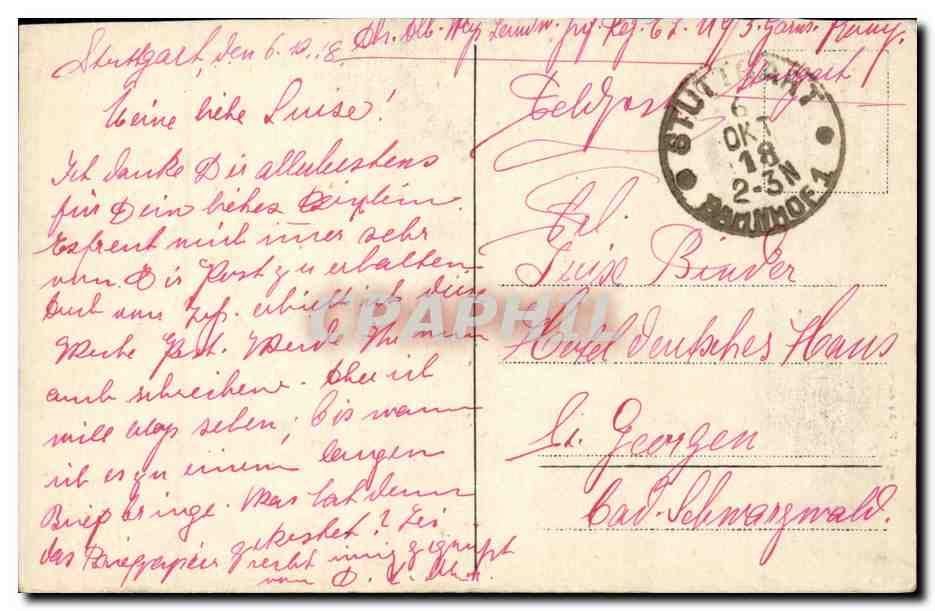 Stuttgart, den 6.10.18.
Meine liebe Luise!
Ich danke Dir allerbestens
für Dein liebes
Es freut mich immer sehr
von Dir Post zu erhalten
Auch von erhielt ich diese
Woche Post. Werde Ihr nun
auch schreiben. Aber ich
will mal sehen, bis wann
ich es zu einem langen
Brief bringe. Was hat denn
das Briefpapier gekostet?
von
Abs.
Stuttgart
Feldpost
STUTTGART
6
OKT
18
2-3N
BAHNHOF 1
Frl.
Luise Binder
Hotel deutsches Haus
St. Georgen
bad. Schwarzwald.
CPAPHIL